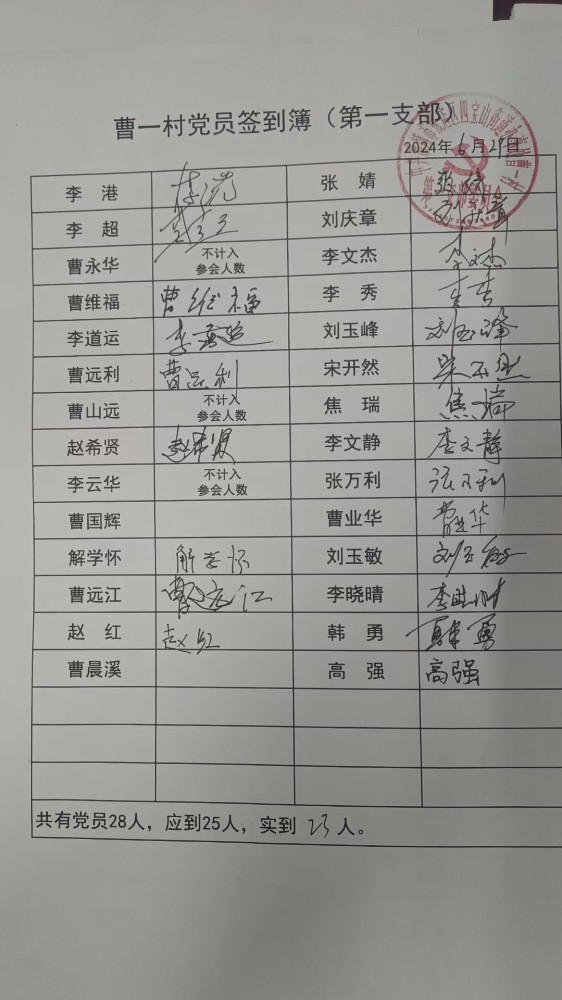 曹一村党员签到簿（第一支部）
2024年6月29日
李港 李港 张婧 张婧
李超 李超 刘庆章
曹永华 不计入参会人数 李文杰 李文杰
曹维福 曹维福 李秀 李秀
李道运 李道运 刘玉峰 刘玉峰
曹远利 曹远利 宋开然 宋开然
曹山远 不计入参会人数 焦瑞 焦瑞
赵希贤 赵希贤 李文静 李文静
李云华 不计入参会人数 张万利 张万利
曹国辉 曹业华 曹业华
解学怀 解学怀 刘玉敏 刘玉敏
曹远江 曹远江 李晓晴 李晓晴
赵红 赵红 韩勇 韩勇
曹晨溪 高强 高强
共有党员28人，应到25人，实到23人。